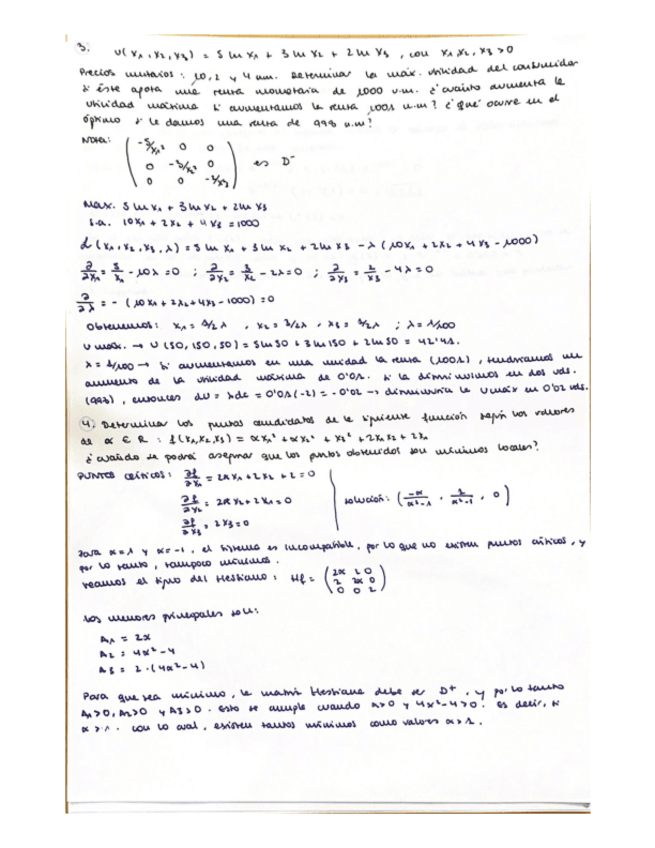 3. U(x₁, x₂, x₃) = 5 ln x₁ + 3 ln x₂ + 2 ln x₃, con x₁, x₂, x₃ > 0
Precios unitarios: 10, 2 y 4 u.m. Determinar la máx. utilidad del consumidor
si éste agota una renta monetaria de 1000 u.m. ¿cuánto aumenta la
utilidad máxima si aumentamos la renta 1001 u.m? ¿qué ocurre en el
óptimo si le damos una renta de 998 u.m?
Nota: ( -5/x₁² 0 0
0 -3/x₂² 0
0 0 -2/x₃² ) es D⁻
Max. 5 ln x₁ + 3 ln x₂ + 2 ln x₃
s.a. 10x₁ + 2x₂ + 4x₃ = 1000
L(x₁, x₂, x₃, λ) = 5 ln x₁ + 3 ln x₂ + 2 ln x₃ - λ(10x₁ + 2x₂ + 4x₃ - 1000)
∂/∂x₁ = 5/x₁ - 10λ = 0 ; ∂/∂x₂ = 3/x₂ - 2λ = 0 ; ∂/∂x₃ = 2/x₃ - 4λ = 0
∂/∂λ = - (10x₁ + 2x₂ + 4x₃ - 1000) = 0
Obtenemos: x₁ = 1/2λ , x₂ = 3/2λ , x₃ = 1/2λ ; λ = 1/100
U max. → U(50, 150, 50) = 5 ln 50 + 3 ln 150 + 2 ln 50 = 42'41.
λ = 1/100 → Si aumentamos en una unidad la renta (1001), tendríamos un
aumento de la utilidad máxima de 0'01. Si la disminuimos en dos uds.
(998), entonces dU = λdc = 0'01(-2) = -0'02 → disminuiría la U máx en 0'02 uds.
4. Determinar los puntos candidatos de la siguiente función según los valores
de α ∈ R : f(x₁,x₂,x₃) = αx₁² + αx₂² + x₃² + 2x₁x₂ + 2x₁
¿cuándo se podrá asegurar que los puntos obtenidos son mínimos locales?
PUNTOS CRÍTICOS: ∂f/∂x₁ = 2αx₁ + 2x₂ + 2 = 0
∂f/∂x₂ = 2αx₂ + 2x₁ = 0
solución: (-α/α²-1 , 1/α²-1 , 0)
∂f/∂x₃ = 2x₃ = 0
Para α = 1 y α = -1, el sistema es incompatible, por lo que no existen puntos críticos, y
por lo tanto, tampoco mínimos.
Veamos el tipo del Hessiano: Hf = ( 2α 2 0
2 2α 0
0 0 2 )
Los menores principales son:
A₁ = 2α
A₂ = 4α² - 4
A₃ = 2·(4α² - 4)
Para que sea mínimo, la matriz Hessiana debe ser D⁺, y por lo tanto
A₁>0, A₂>0 y A₃>0. Esto se cumple cuando α>0 y 4α²-4>0. Es decir, si
α>1. Con lo cual, existen tantos mínimos como valores α>1.